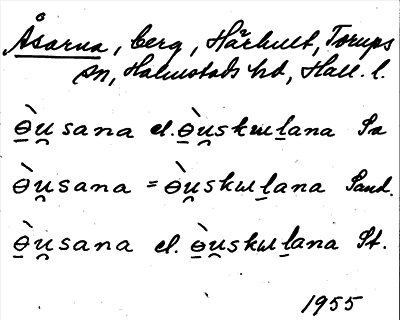 Åsarna, berg, Härkult, Torups
sn, Halmstads hd, Hall. l.
ɵ̀u̯sana el. ɵ̀u̯skɯḻana Sa
ɵ̀u̯sana = ɵ̀u̯skɯḻana Sand.
ɵ̀u̯sana el. ɵ̀u̯skɯḻana St.
1955